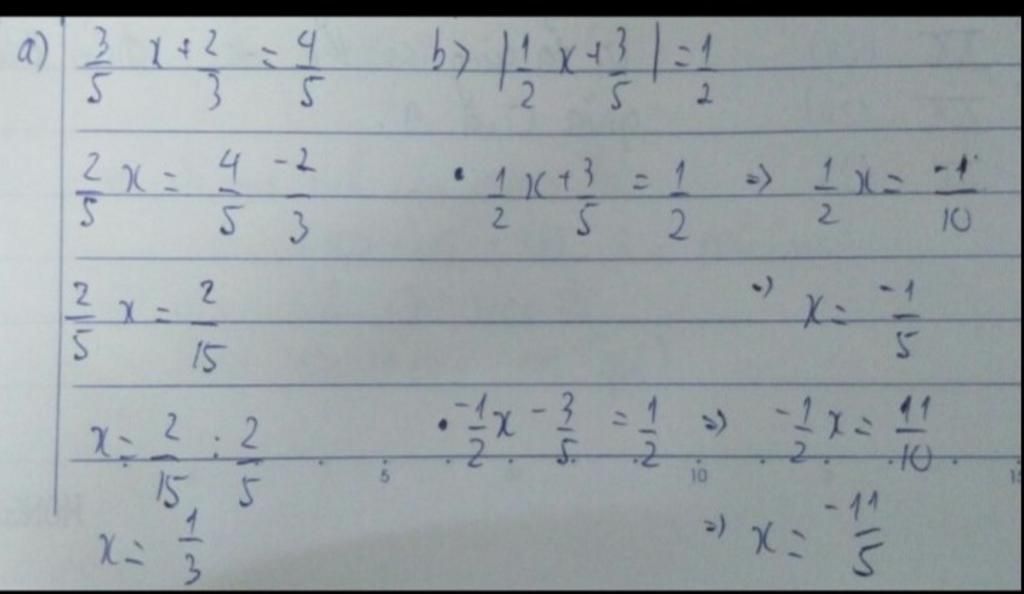 a) 3/5 x + 2/3 = 4/5
2/5 x = 4/5 - 2/3
2/5 x = 2/15
x = 2/15 : 2/5
x = 1/3
b) |1/2 x + 3/5| = 1/2
• 1/2 x + 3/5 = 1/2 => 1/2 x = -1/10
=> x = -1/5
• -1/2 x - 3/5 = 1/2 => -1/2 x = 11/10
=> x = -11/5
5 10